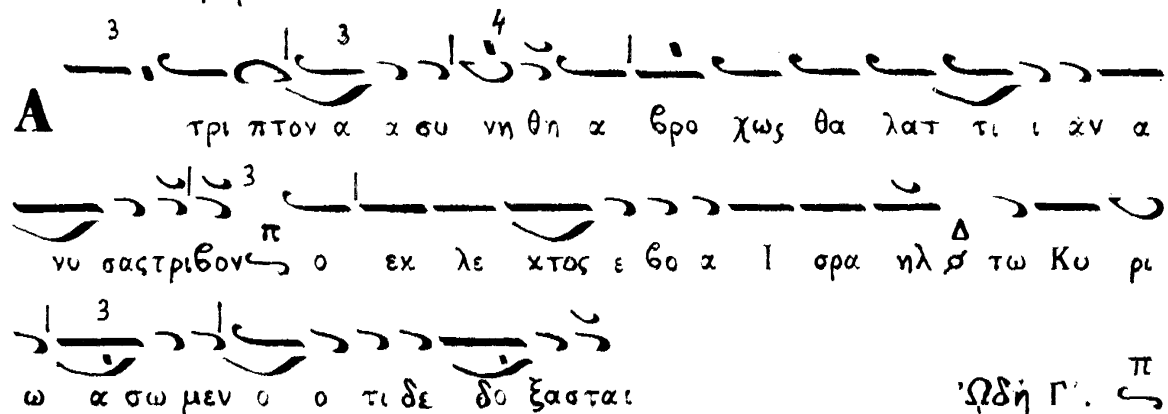 Α τρι πτον α α συ νη θη α βρο χως θα λατ τι ι αν α
νυ σας τριβον π ο εκ λε κτος ε βο α Ι σρα ηλ Δ τω Κυ ρι
ω α σω μεν ο ο τι δε δο ξασται Ὠδή Γ´. π